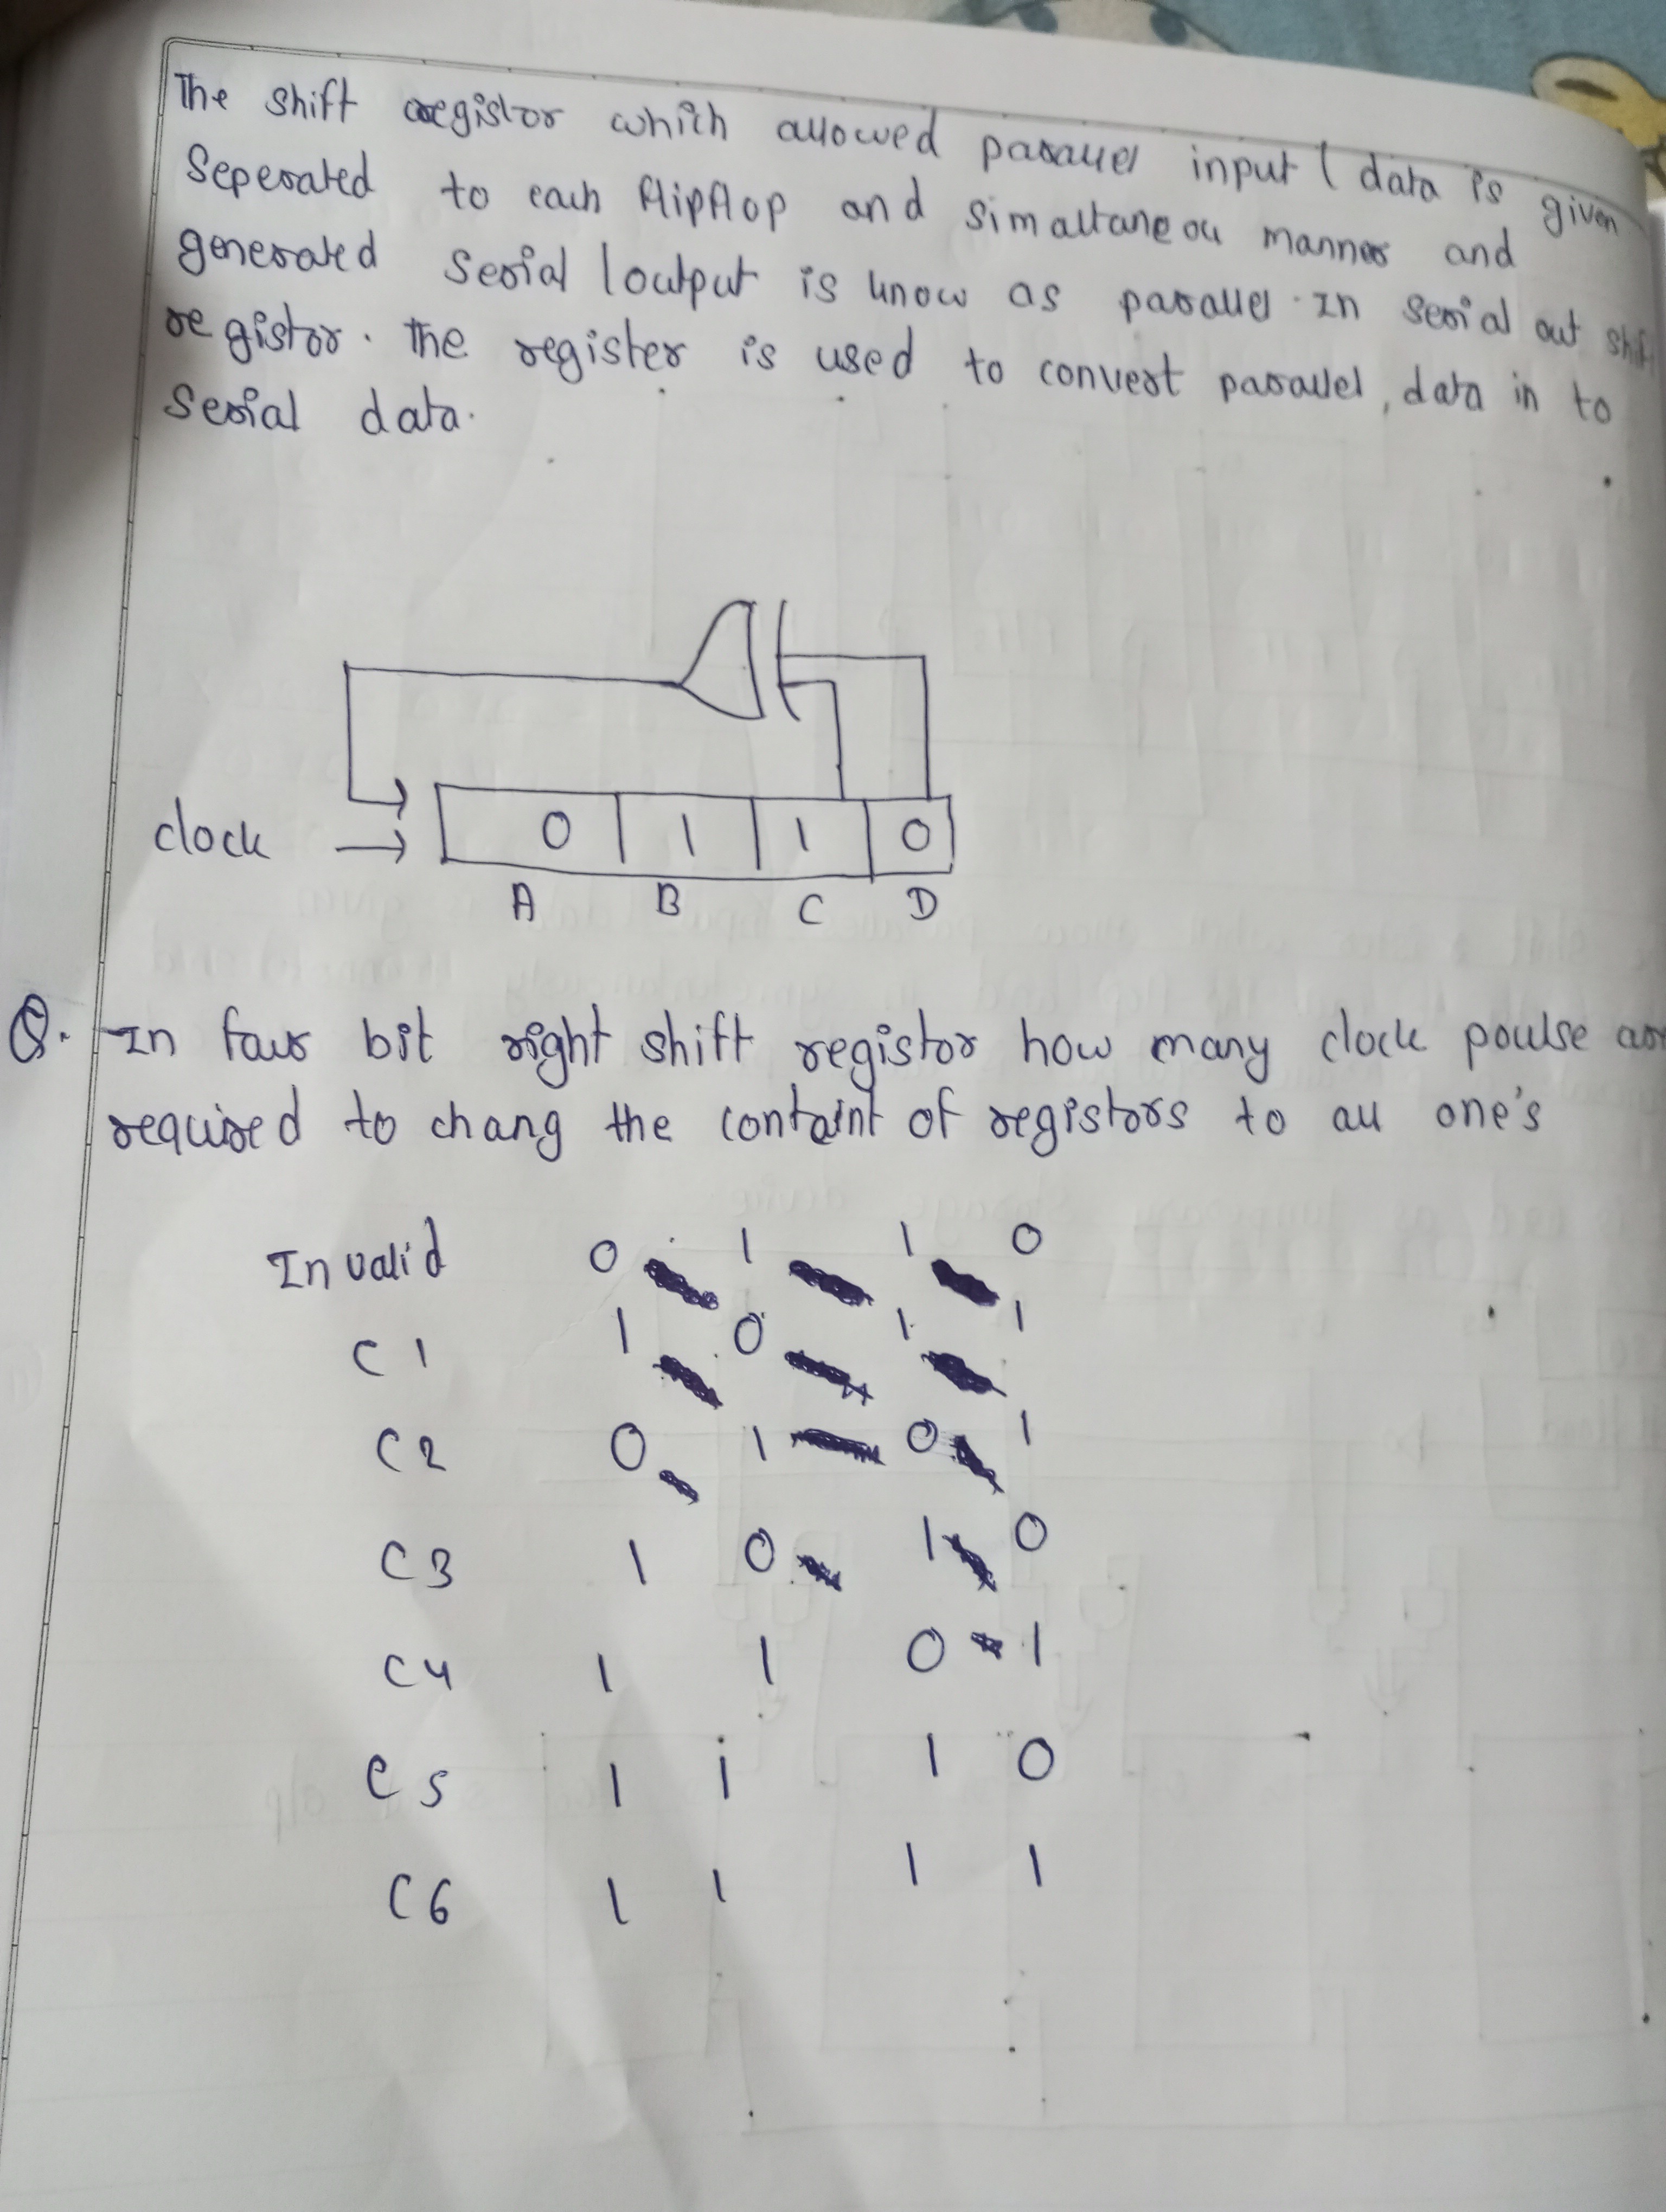 The shift registor which allowed parallel input ( data is given
Seperated to each flipflop and simaltaneou manner and
generated serial loutput is know as parallel In serial out shift
registor. The register is used to convert parallel, data in to
serial data.
clock → 0 1 1 0
A B C D
Q. In four bit right shift registor how many clock poulse are
required to chang the containt of registors to all one's
Invalid 0 1 1 0
C1 1 0 1 1
C2 0 1 0 1
C3 1 0 1 0
C4 1 1 0 1
C5 1 1 1 0
C6 1 1 1 1